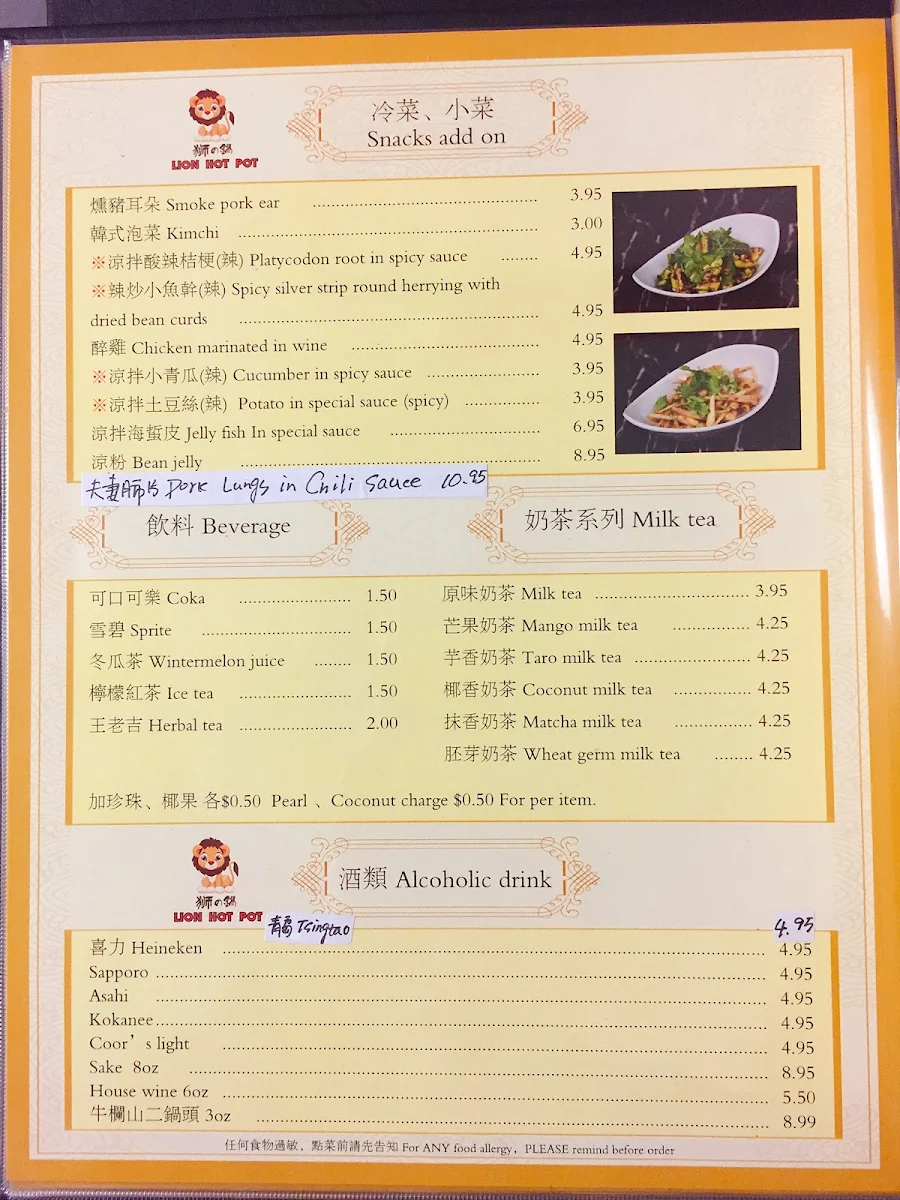 獅の鍋
LION HOT POT
冷菜、小菜
Snacks add on
燻豬耳朵 Smoke pork ear 3.95
韓式泡菜 Kimchi 3.00
※涼拌酸辣桔梗(辣) Platycodon root in spicy sauce 4.95
※辣炒小魚幹(辣) Spicy silver strip round herrying with
dried bean curds 4.95
醉雞 Chicken marinated in wine 4.95
※涼拌小青瓜(辣) Cucumber in spicy sauce 3.95
※涼拌土豆絲(辣) Potato in special sauce (spicy) 3.95
涼拌海蜇皮 Jelly fish In special sauce 6.95
涼粉 Bean jelly 8.95
夫妻肺片 Pork Lungs in Chili Sauce 10.95
飲料 Beverage
可口可樂 Coka 1.50
雪碧 Sprite 1.50
冬瓜茶 Wintermelon juice 1.50
檸檬紅茶 Ice tea 1.50
王老吉 Herbal tea 2.00
奶茶系列 Milk tea
原味奶茶 Milk tea 3.95
芒果奶茶 Mango milk tea 4.25
芋香奶茶 Taro milk tea 4.25
椰香奶茶 Coconut milk tea 4.25
抹香奶茶 Matcha milk tea 4.25
胚芽奶茶 Wheat germ milk tea 4.25
加珍珠、椰果 各$0.50 Pearl 、Coconut charge $0.50 For per item.
獅の鍋
LION HOT POT
酒類 Alcoholic drink
Tsingtao 4.95
喜力 Heineken 4.95
Sapporo 4.95
Asahi 4.95
Kokanee 4.95
Coor’s light 4.95
Sake 8oz 8.95
House wine 6oz 5.50
牛欄山二鍋頭 3oz 8.99
任何食物過敏，點菜前請先告知 For ANY food allergy，PLEASE remind before order